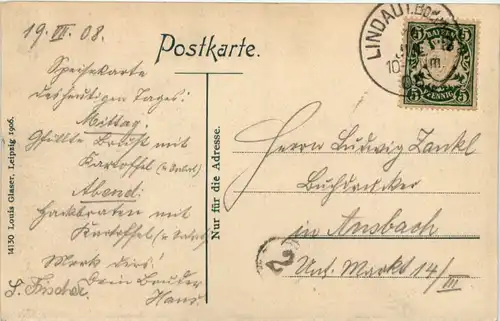 19. VII. 08.
Postkarte.
Speisekarte
des heutigen Tages:
Mittag:
Gfüllte Brust mit
Kartoffel (u Salat)
Abend:
Hackbraten mit
Kartoffel (u Salat)
Merk dirs!
Dein Bruder
Hans.
S. Fischer
14130 Louis Glaser, Leipzig 1906.
Nur für die Adresse.
LINDAU i. Bod
BAYERN
5 5
PFENNIG
Herrn Ludwig Zankl
Buchdrucker
in Ansbach
Unt. Markt 14/III
2